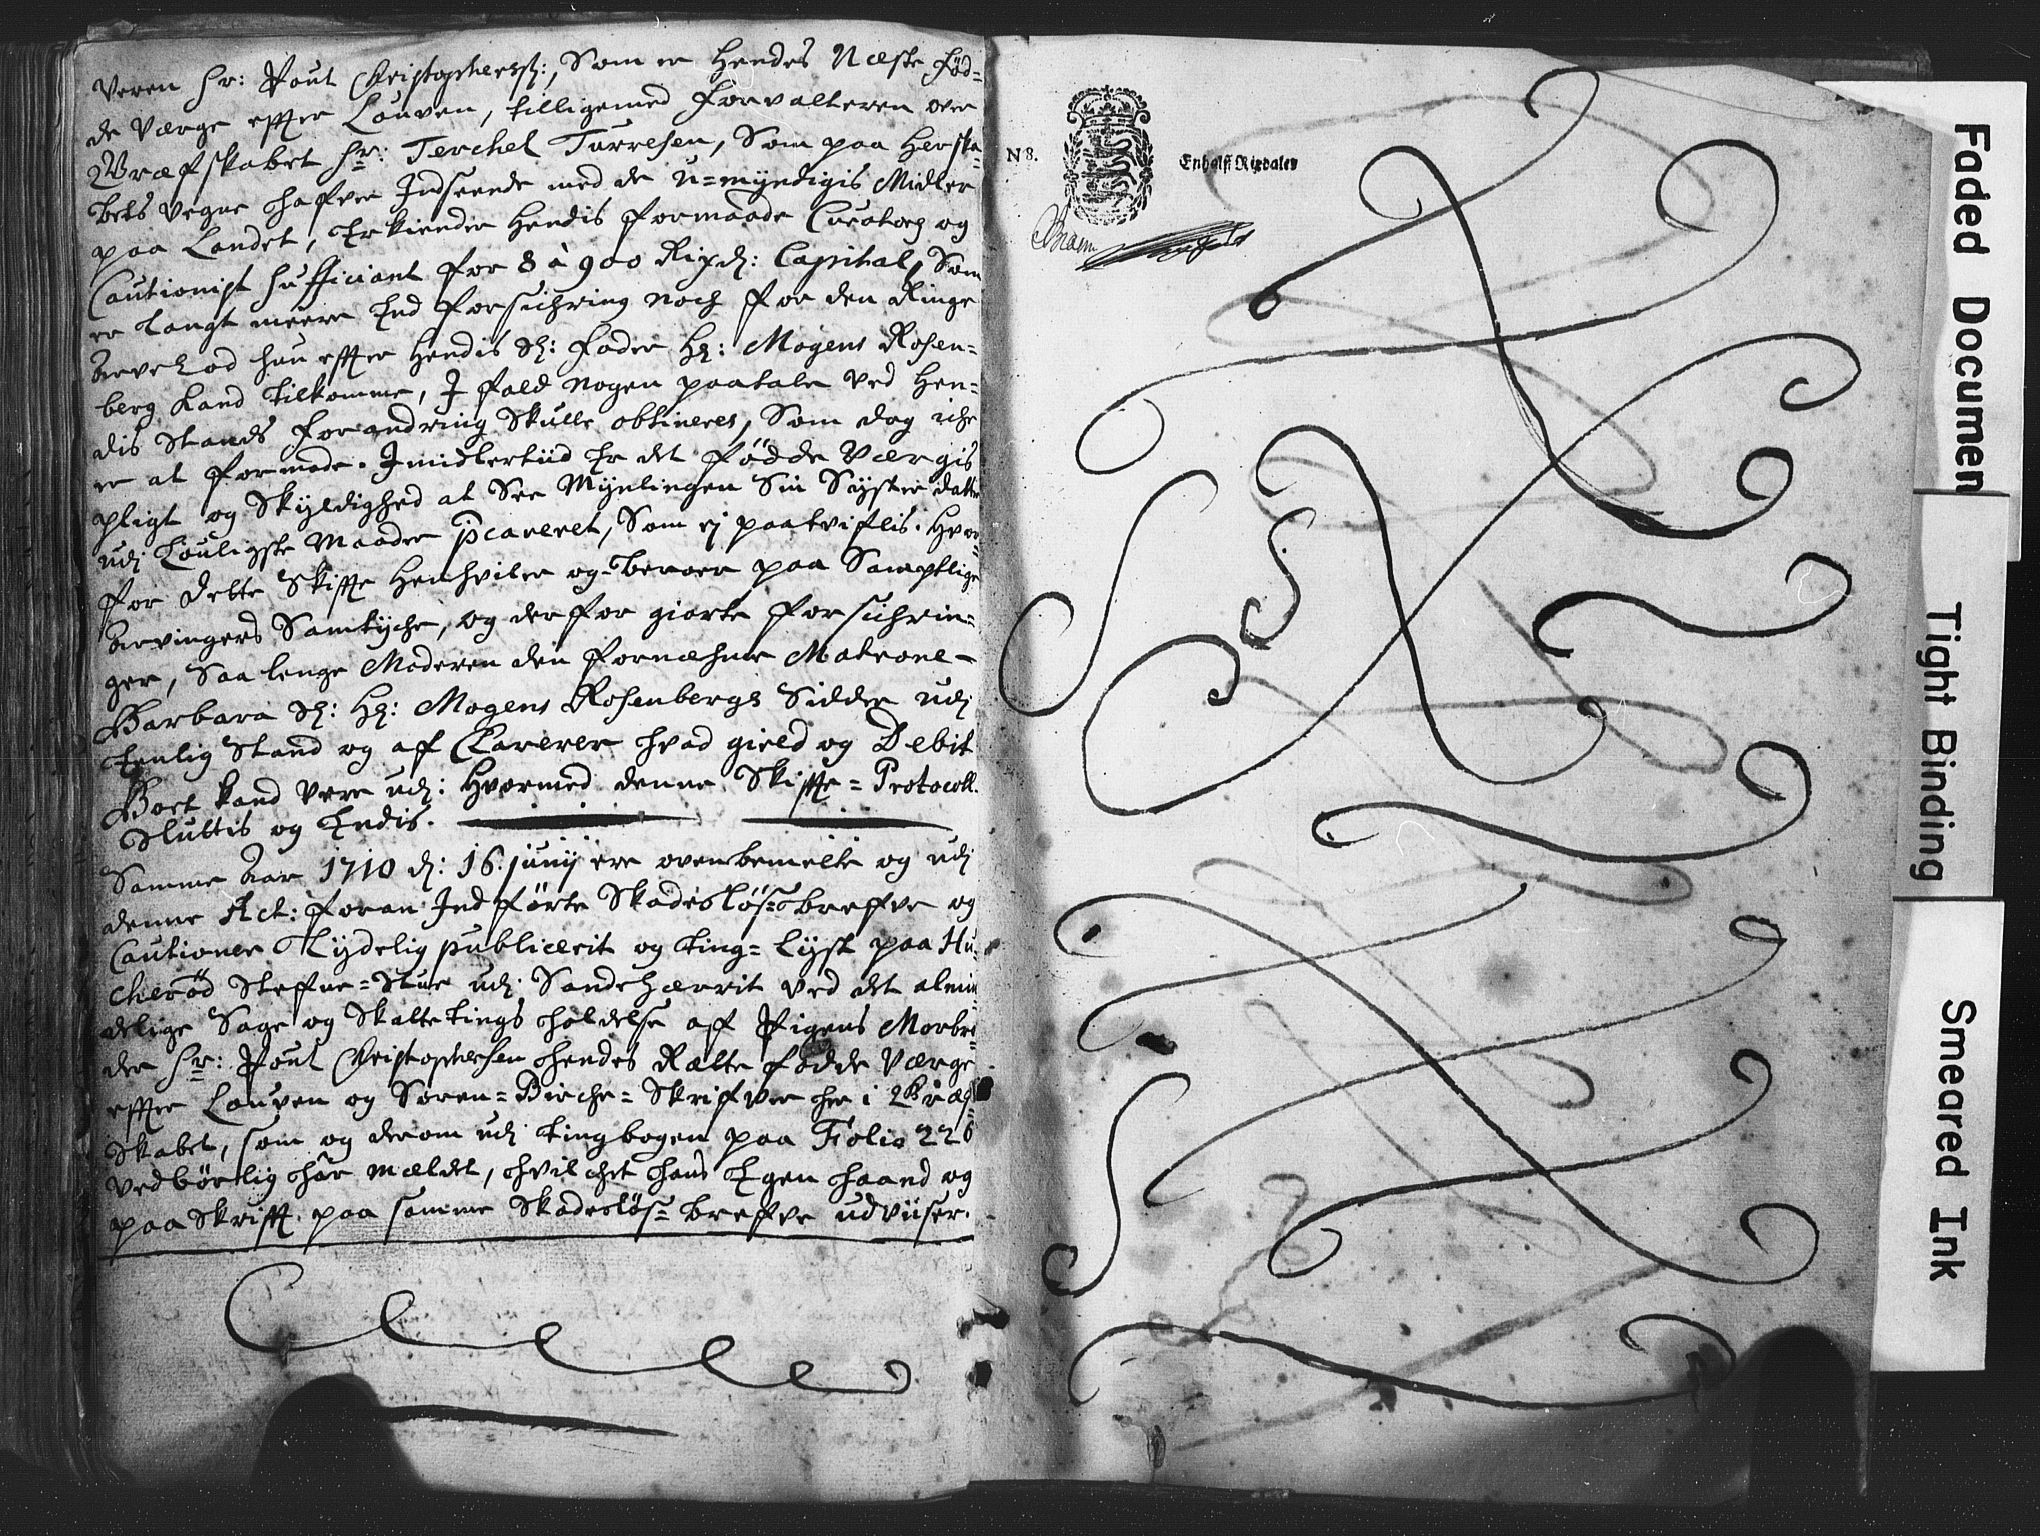 veren Hr: Poul Christophersß:, Som er Hendes Næste Fød=
de Værge effter Louven, tilligemed Forvalteren over
Græfskabet Hr: Terchel Turresen, Som paa Herska=
bets vegne hafver Indseende med de U=myndigis Midler
paa Landet, Erkiender Hendis formaade Curatorz og
Cautionist sufficiant for 8 à 900 Rixd: Capital, Som
er langt meere End forsichring noch for den Ringe
Arvelod hun effter Hendis Sl: Fader Hr: Mogens Rosen=
berg Kand tilkomme, J fald nogen paatale ved Hen=
dis Stands forandring Skulle obtineres, Som dog iche
er at formode. Jmidlertiid Er det fødde Værgis
pligt og Skyldighed at See Mynlingen Sin Syster datter
udj Louligste Maader pcaveret, Som ej paatviflis. Hvor=
for dette Skiffte Henhviler og beroer paa Samptlige
Arvingers Samtyche, og derfor giorte forsichrin=
ger, Saa lenge Moderen den fornæhme Matrone
Barbara Sl: Hr: Mogens Rosenbergs Sidder udj
Eenlig Stand og aff Clarerer hvad gield og Debit
Boet kand være udj: Hvormed denne Skiffte= Protocoll
Sluttis og Endis.
Samme Aar 1710 d: 16. junij ere ovenbemelte og udj
denne Act: foran Indførte Skadesløs=breffve og
Cautioner Tydelig publicerit og ting=lyst paa Hu=
cherød Steffne=Stue udj Sandehærrit ved det almin=
delige Sage og Skattetings holdelse aff Pigens Morbro=
der Hr: Poul Christophersen hendes Rætte fødde Værge
effter Louven og Soren=Birche=Skrifver her i Græf=
Skabet, som og derom udj tingbogen paa Folio 226
vedbørlig har mældet, hvilchet hans Egen haand og
paa Skrifft paa samme Skadesløs=breffve udviiser.
N 8.
Enhalff Rixdaler
Braem
Faded Documen
Tight Binding
Smeared Ink